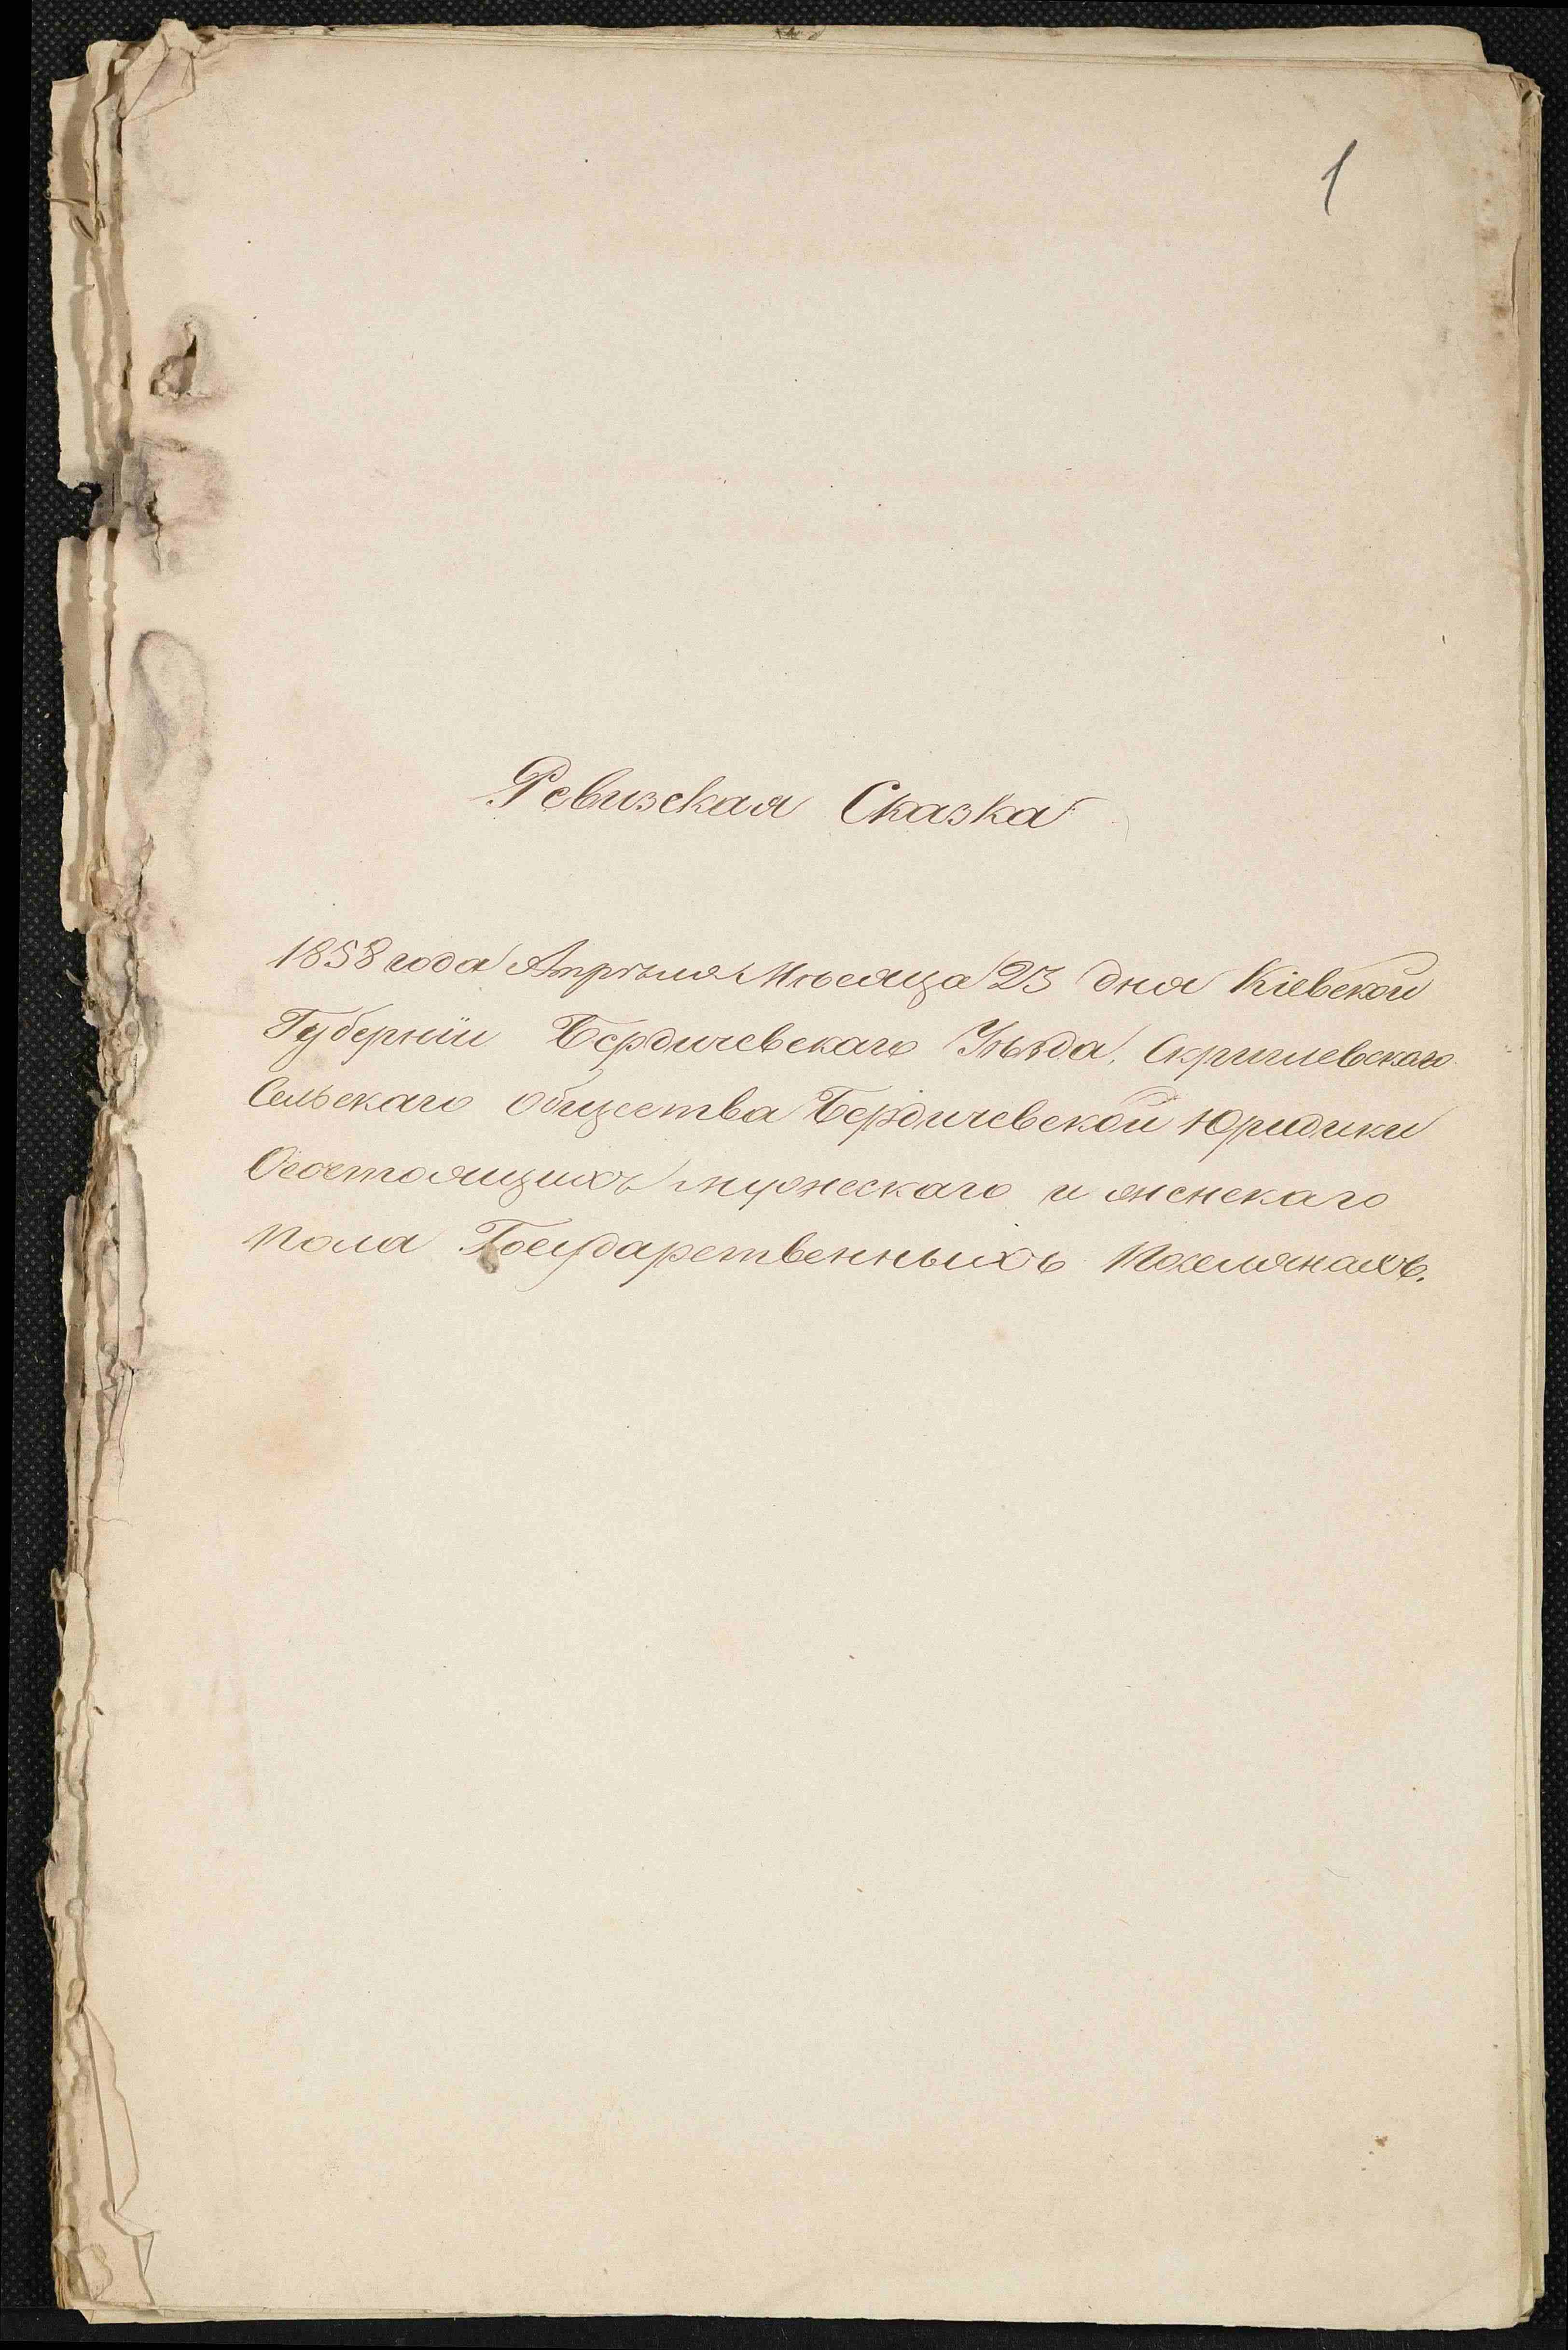 1
Ревизская Сказка
1858 года Апрѣля Мѣсяца 23 дня Кіевской
Губерніи Бердичевскаго Уѣзда, Скриглевскаго
Сельскаго общества Бердичевской Юридики
Осостоящихъ мужескаго и женскаго
пола Государственныхъ Поселянахъ.